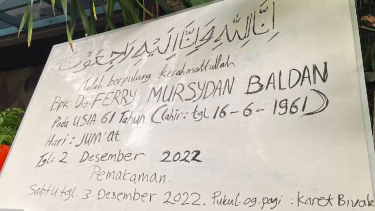 إِنَّا لِلَّهِ وَإِنَّا إِلَيْهِ رَاجِعُوْنَ
Telah berpulang kerahmatullah
Bpk. Drs FERRY MURSYDAN BALDAN
Pada USIA 61 Tahun (Lahir: tgl 16-6-1961)
Hari: JUM'at
Tgl: 2 Desember 2022
Pemakaman.
Sabtu tgl. 3. Desember 2022. Pukul.09.pagi : Karet Bivak